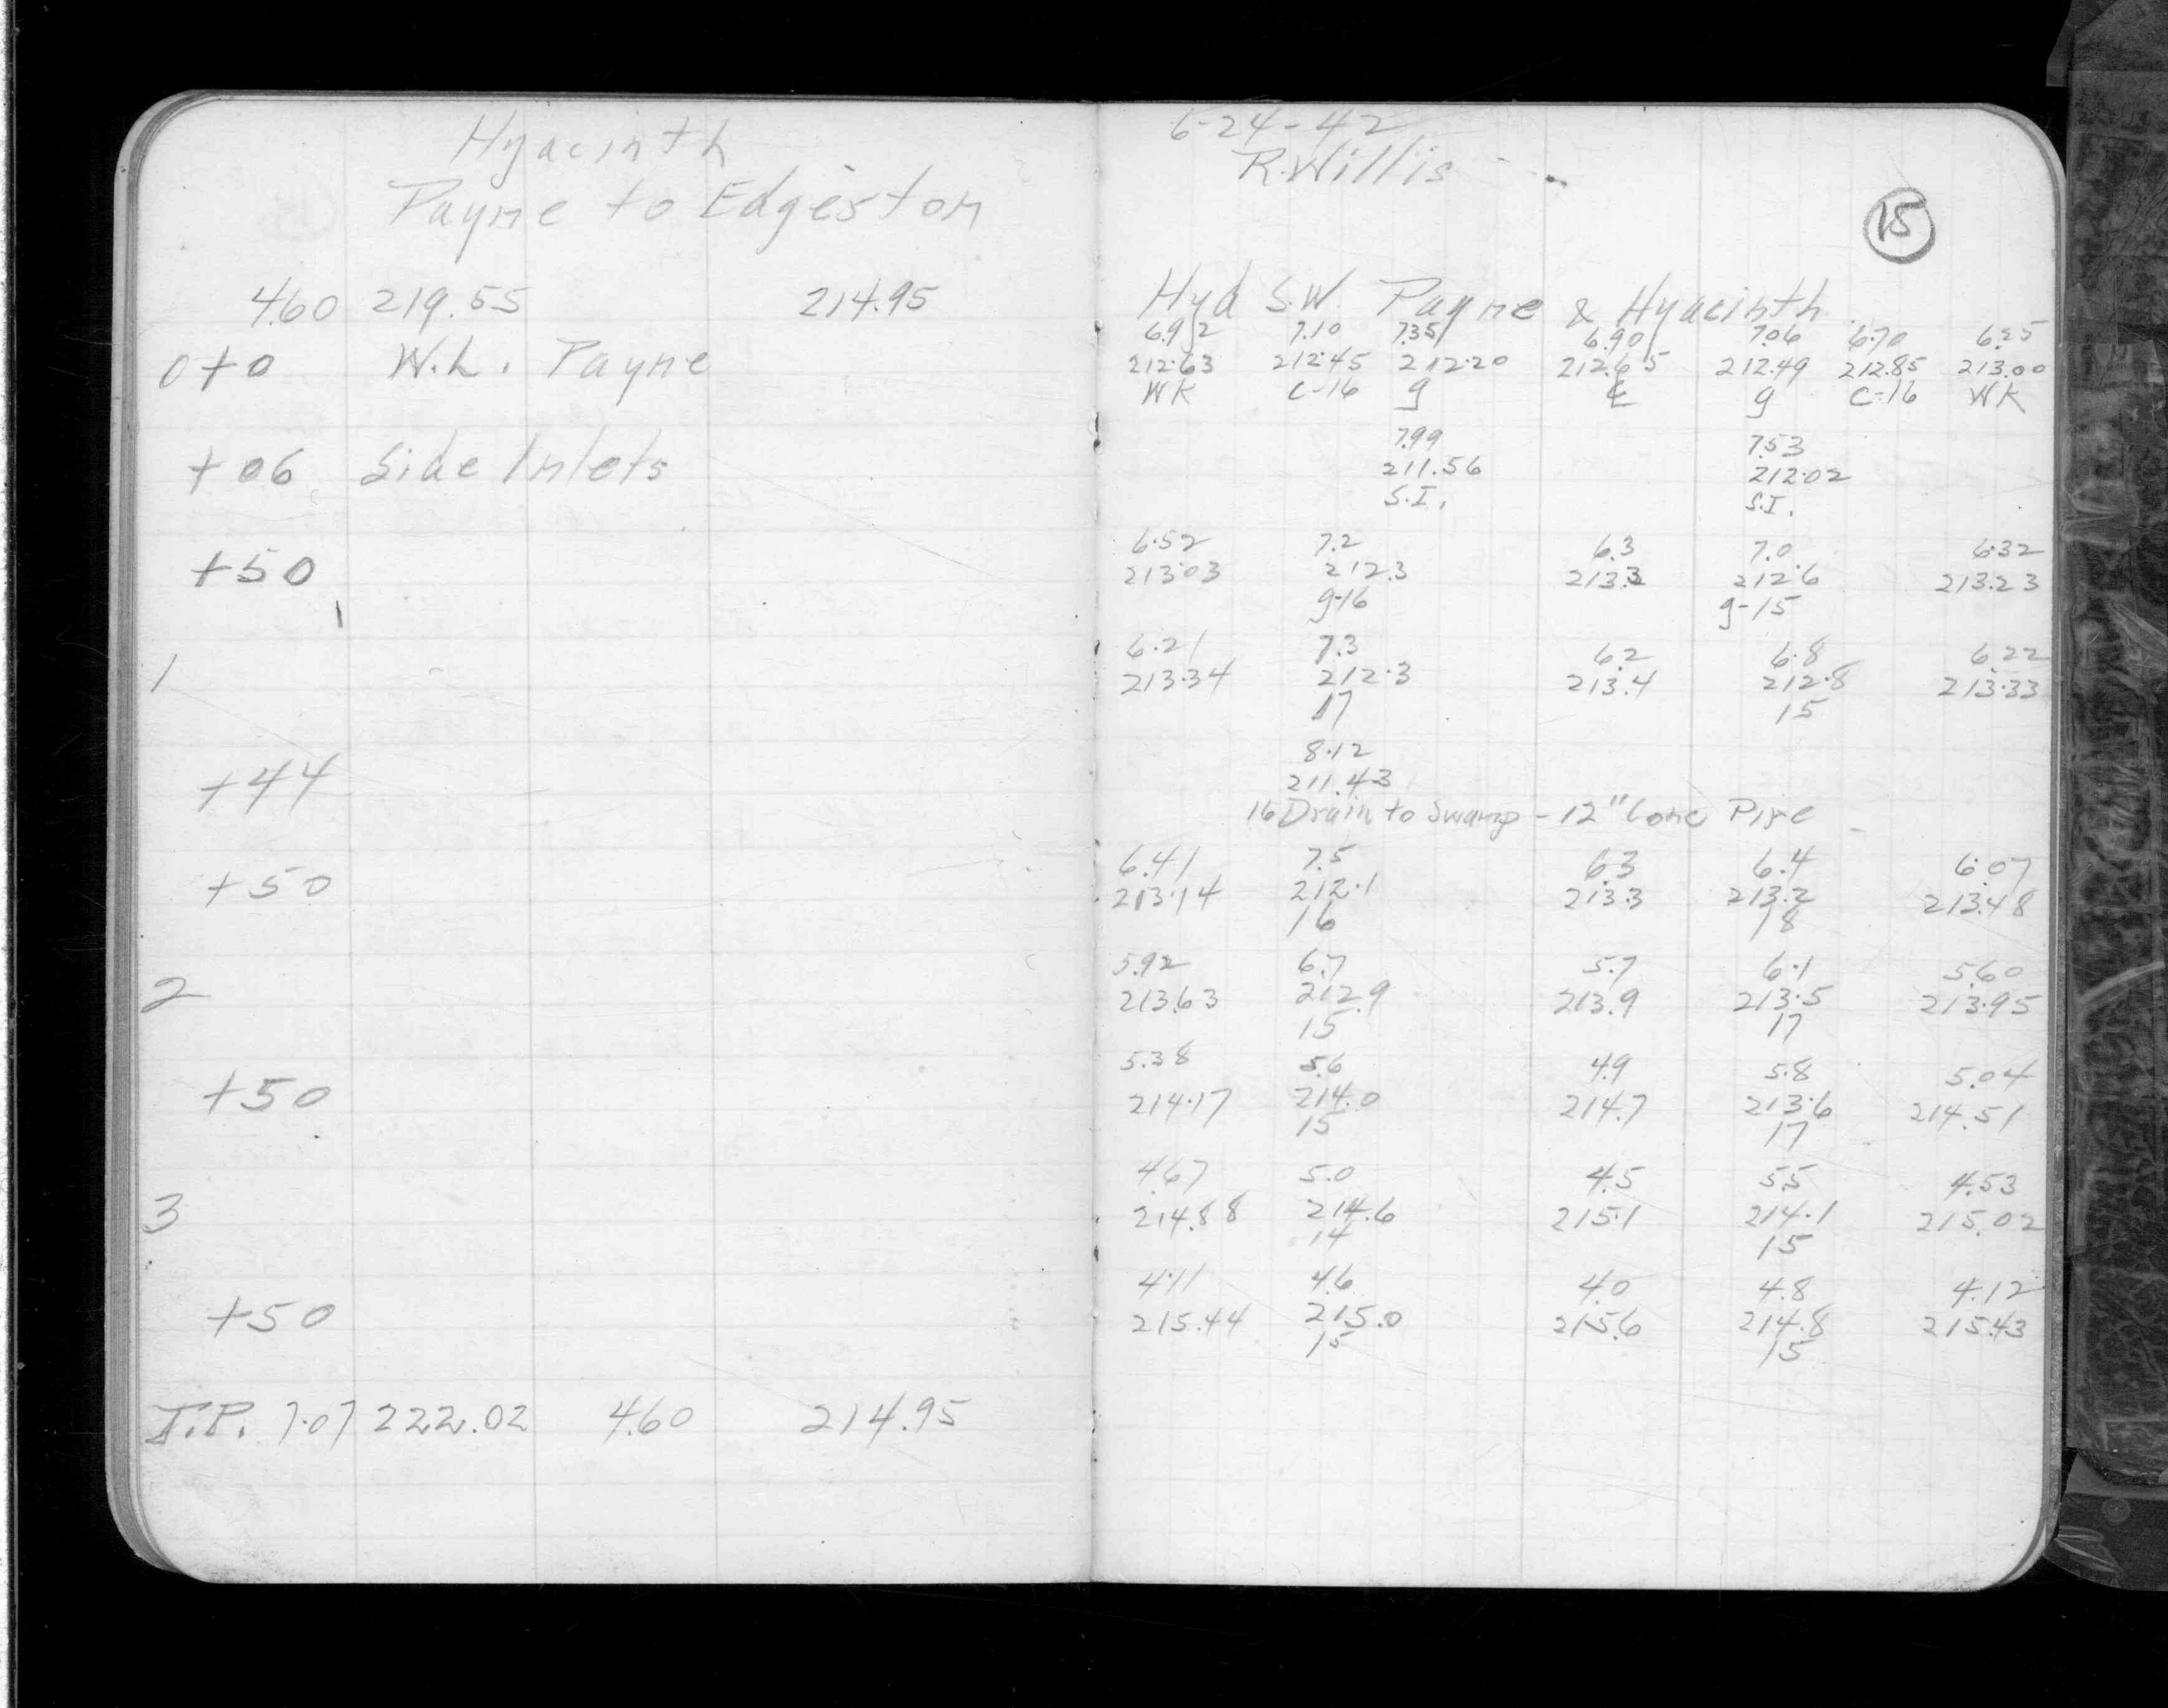 Hyacinth
Payne to Edgerton
4.60 219.55 214.95
0+0 W.L. Payne
+06 Side Inlets
+50
1
+44
+50
2
+50
3
+50
T.P. 7.07 222.02 4.60 214.95
6-24-42
R. Willis
15
Hyd S.W. Payne & Hyacinth
6.92 7.10 7.35 6.90 7.06 6.70 6.25
212.63 212.45 212.20 212.65 212.49 212.85 213.00
WK C-16 g ℄ g C-16 WK
7.99 7.53
211.56 212.02
S.I. S.I.
6.52 7.2 6.3 7.0 6.32
213.03 212.3 213.3 212.6 213.23
g-16 g-15
6.21 7.3 6.2 6.8 6.22
213.34 212.3 213.4 212.8 213.33
17 15
8.12
211.43
16 Drain to Swamp - 12" Conc Pipe
6.41 7.5 6.3 6.4 6.07
213.14 212.1 213.3 213.2 213.48
16 18
5.92 6.7 5.7 6.1 5.60
213.63 212.9 213.9 213.5 213.95
15 17
5.38 5.6 4.9 5.8 5.04
214.17 214.0 214.7 213.6 214.51
15 17
4.67 5.0 4.5 5.5 4.53
214.88 214.6 215.1 214.1 215.02
14 15
4.11 4.6 4.0 4.8 4.12
215.44 215.0 215.6 214.8 215.43
15 15